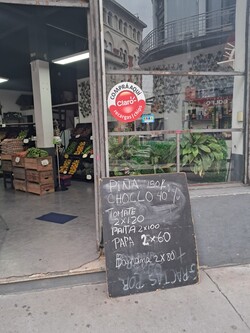 COMPRA AQUÍ
Claro
recargas y chips
PIÑA 150K
CHOCLO 40
TOMATE
2x120
PALTA 2x100
PAPA 2x60
Banana 2x80
GRACIAS POR